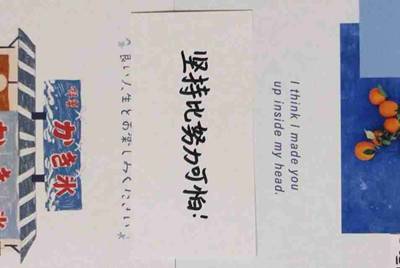 かき氷
かき氷
良い人生とお楽しみください
坚持比努力可怕!
I think I made you
up inside my head.